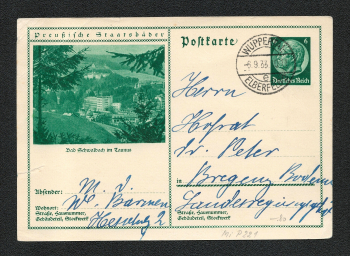 Preußische Staatsbäder
Bad Schwalbach im Taunus
Absender: M. J.
W. Barmen
Wohnort:
Straße, Hausnummer,
Gebäudeteil, Stockwerk
2
Postkarte
WUPPER
-6.9.33
ELBERFELD
6
Deutsches Reich
Herrn
Hofrat
Dr. Peter
in Bregenz Bodensee
Landesregierung
Straße, Hausnummer,
Gebäudeteil, Stockwerk